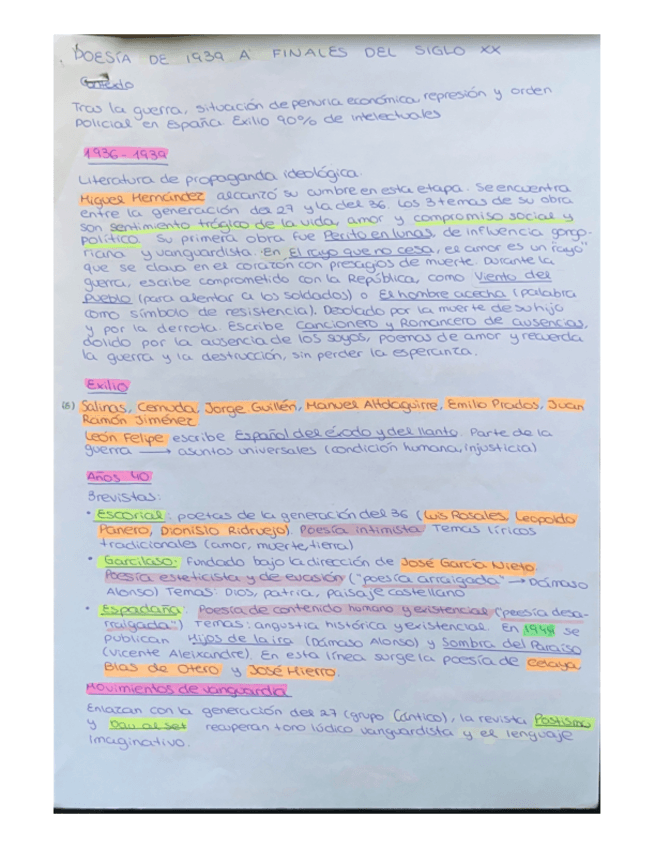 POESÍA DE 1939 A FINALES DEL SIGLO XX
Contexto
Tras la guerra, situación de penuria económica, represión y orden
policial en España. Exilio 90% de intelectuales
1936-1939
Literatura de propaganda ideológica.
Miguel Hernández alcanzó su cumbre en esta etapa. Se encuentra
entre la generación del 27 y la del 36. Los 3 temas de su obra
son sentimiento trágico de la vida, amor y compromiso social y
político. Su primera obra fue Perito en lunas, de influencia gongo-
riana y vanguardista. En El rayo que no cesa, el amor es un "rayo"
que se clava en el corazón con presagios de muerte. Durante la
guerra, escribe comprometido con la República, como Viento del
Pueblo (para alentar a los soldados) o El hombre acecha (palabra
como símbolo de resistencia). Desolado por la muerte de su hijo
y por la derrota. Escribe Cancionero y Romancero de ausencias,
dolido por la ausencia de los suyos, poemas de amor y recuerda
la guerra y la destrucción, sin perder la esperanza.
Exilio
Salinas, Cernuda, Jorge Guillén, Manuel Altolaguirre, Emilio Prados, Juan
Ramón Jiménez
León Felipe escribe Español del éxodo y del llanto. Parte de la
guerra → asuntos universales (condición humana, injusticia)
Años 40
3 revistas:
• Escorial: poetas de la generación del 36 (Luis Rosales, Leopoldo
Panero, Dionisio Ridruejo). Poesía intimista. Temas líricos
tradicionales (amor, muerte, tierra)
• Garcilaso: Fundado bajo la dirección de José García Nieto.
Poesía esteticista y de evasión ("poesía arraigada" → Dámaso
Alonso) Temas: Dios, patria, paisaje castellano
• Espadaña: Poesía de contenido humano y existencial (poesía desa-
rraigada") Temas: angustia histórica y existencial. En 1944 se
publican Hijos de la ira (Dámaso Alonso) y Sombra del Paraíso
(Vicente Aleixandre). En esta línea surge la poesía de Celaya,
Blas de Otero y José Hierro.
Movimientos de vanguardia
Enlazan con la generación del 27 (grupo Cántico), la revista Postismo
y Dau al set recuperan tono lúdico vanguardista y el lenguaje
imaginativo.